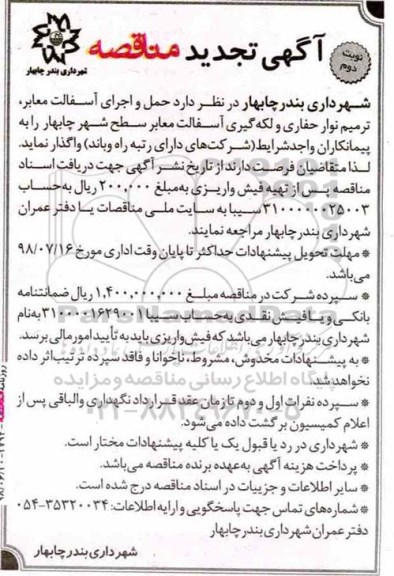 آگهی تجدید مناقصه
نوبت دوم
شهرداری بندر چابهار
شهرداری بندر چابهار در نظر دارد حمل و اجرای آسفالت معابر،
ترمیم نوار حفاری و لکه گیری آسفالت معابر سطح شهر چابهار را به
پیمانکاران واجد شرایط (شرکت‌های دارای رتبه راه و باند) واگذار نماید.
لذا متقاضیان فرصت دارند از تاریخ نشر آگهی جهت دریافت اسناد
مناقصه پس از تهیه فیش واریزی به مبلغ ۲۰۰,۰۰۰ ریال به حساب
سیبا به سایت ملی مناقصات یا دفتر عمران
شهرداری بندر چابهار مراجعه نمایند.
* مهلت تحویل پیشنهادات حداکثر تا پایان وقت اداری مورخ ۹۸/۰۷/۱۶
می‌باشد.
* سپرده شرکت در مناقصه مبلغ ۱,۴۰۰,۰۰۰,۰۰۰ ریال ضمانتنامه
بانکی و یا فیش نقدی به حساب سیبا به نام
شهرداری بندر چابهار می‌باشد که فیش واریز باید به تأیید امور مالی برسد.
* به پیشنهادات مخدوش، مشروط، ناخوانا و فاقد سپرده ترتیب اثر داده
نخواهد شد.
پایگاه اطلاع رسانی مناقصه و مزایده
* سپرده نفرات اول و دوم تا زمان عقد قرارداد نگهداری و الباقی پس از
اعلام کمیسیون برگشت داده می‌شود.
* شهرداری در رد یا قبول یک یا کلیه پیشنهادات مختار است.
* پرداخت هزینه آگهی به عهده برنده مناقصه می‌باشد.
* سایر اطلاعات و جزییات در اسناد مناقصه درج شده است.
* شماره‌های تماس جهت پاسخگویی و ارایه اطلاعات: ۳۵۳۲۰۰۳۴-۰۵۴
دفتر عمران شهرداری بندر چابهار
شهرداری بندر چابهار